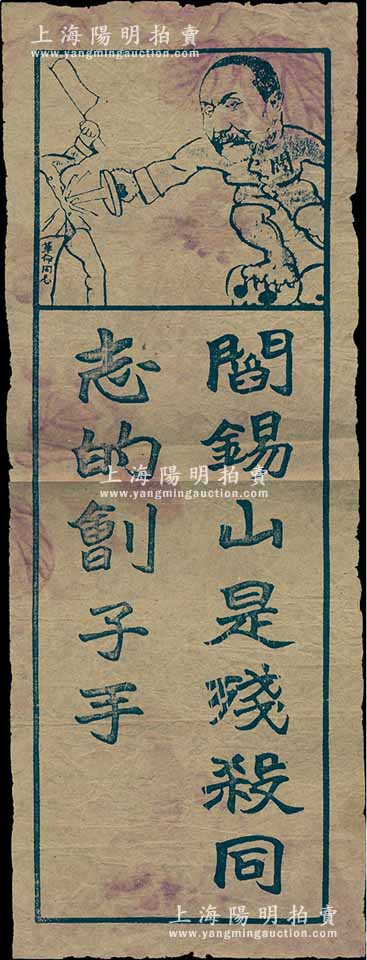 上海陽明拍賣
www.yangmingauction.com
閻
革命同志
閻錫山是殘殺同
志的劊子手
上海陽明拍賣
www.yangmingauction.com
上海陽明拍賣
www.yangmingauction.com